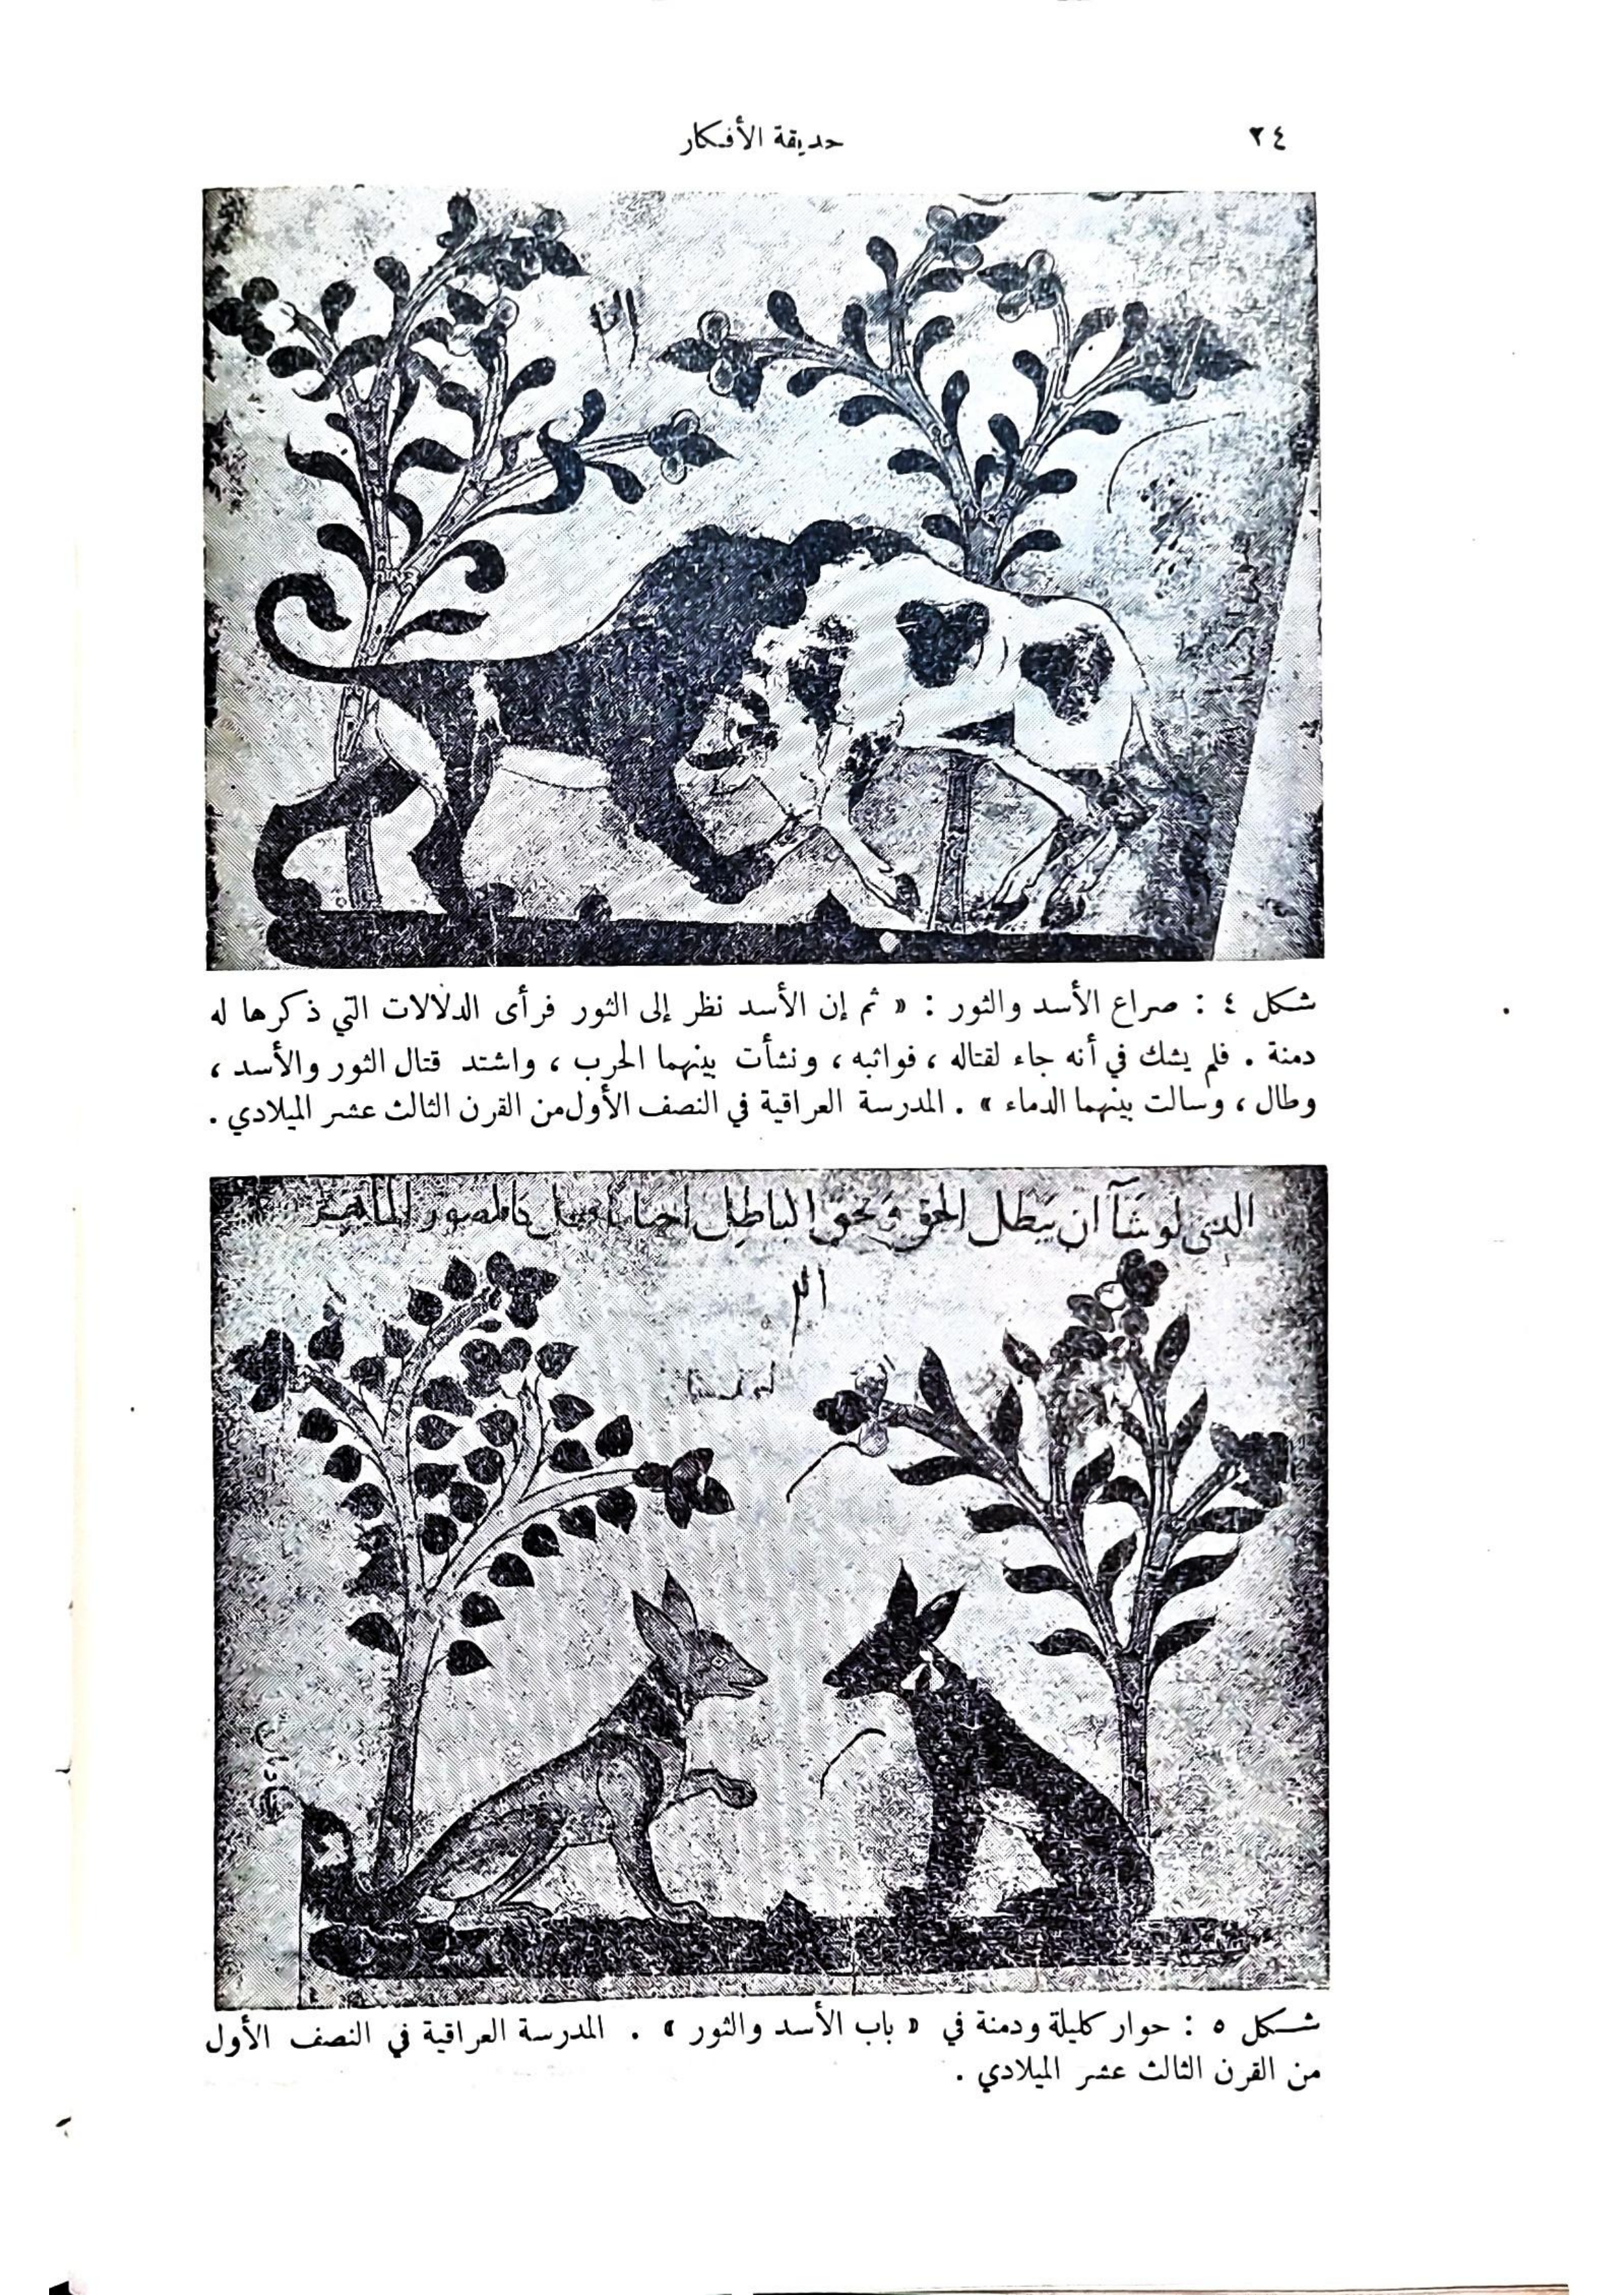 ٢٤
حديقة الأفكار
شكل ٤ : صراع الأسد والثور : « ثم إن الأسد نظر إلى الثور فرأى الدلالات التي ذكرها له
دمنة . فلم يشك في أنه جاء لقتاله ، فواثبه ، ونشأت بينهما الحرب ، واشتد قتال الثور والأسد ،
وطال ، وسالت بينهما الدماء » . المدرسة العراقية في النصف الأول من القرن الثالث عشر الميلادي .
الذي لو شآ ان يبطل الحق ويحق الباطل احيانا فعل كالمصور الماهر
شكل ٥ : حوار كليلة ودمنة في « باب الأسد والثور » . المدرسة العراقية في النصف الأول
من القرن الثالث عشر الميلادي .